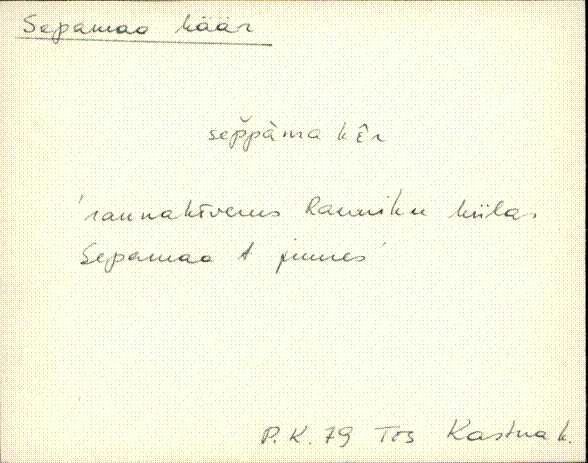 Sepamaa käär
sep̆pàma kɛ̂r
'rannakīverus Ranniku külas
Sepamaa t juures'
P.K. 79 Tõs Kastna k.